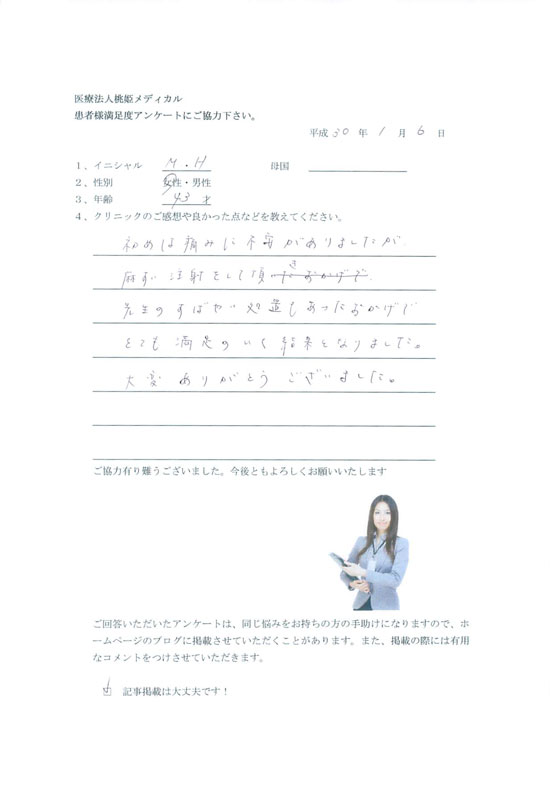 医療法人桃姫メディカル
患者様満足度アンケートにご協力下さい。
平成 30 年 1 月 6 日
1、イニシャル M・H 母国
2、性別 女性・男性
3、年齢 43 才
4、クリニックのご感想や良かった点などを教えてください。
初めは痛みに不安がありましたが
麻すい注射をして頂き
先生のすばやい処置もあったおかげで
とても満足のいく結果となりました。
大変ありがとうございました。
ご協力有り難うございました。今後ともよろしくお願いいたします
ご回答いただいたアンケートは、同じ悩みをお持ちの方の手助けになりますので、ホ
ームページのブログに掲載させていただくことがあります。また、掲載の際には有用
なコメントをつけさせていただきます。
記事掲載は大丈夫です！